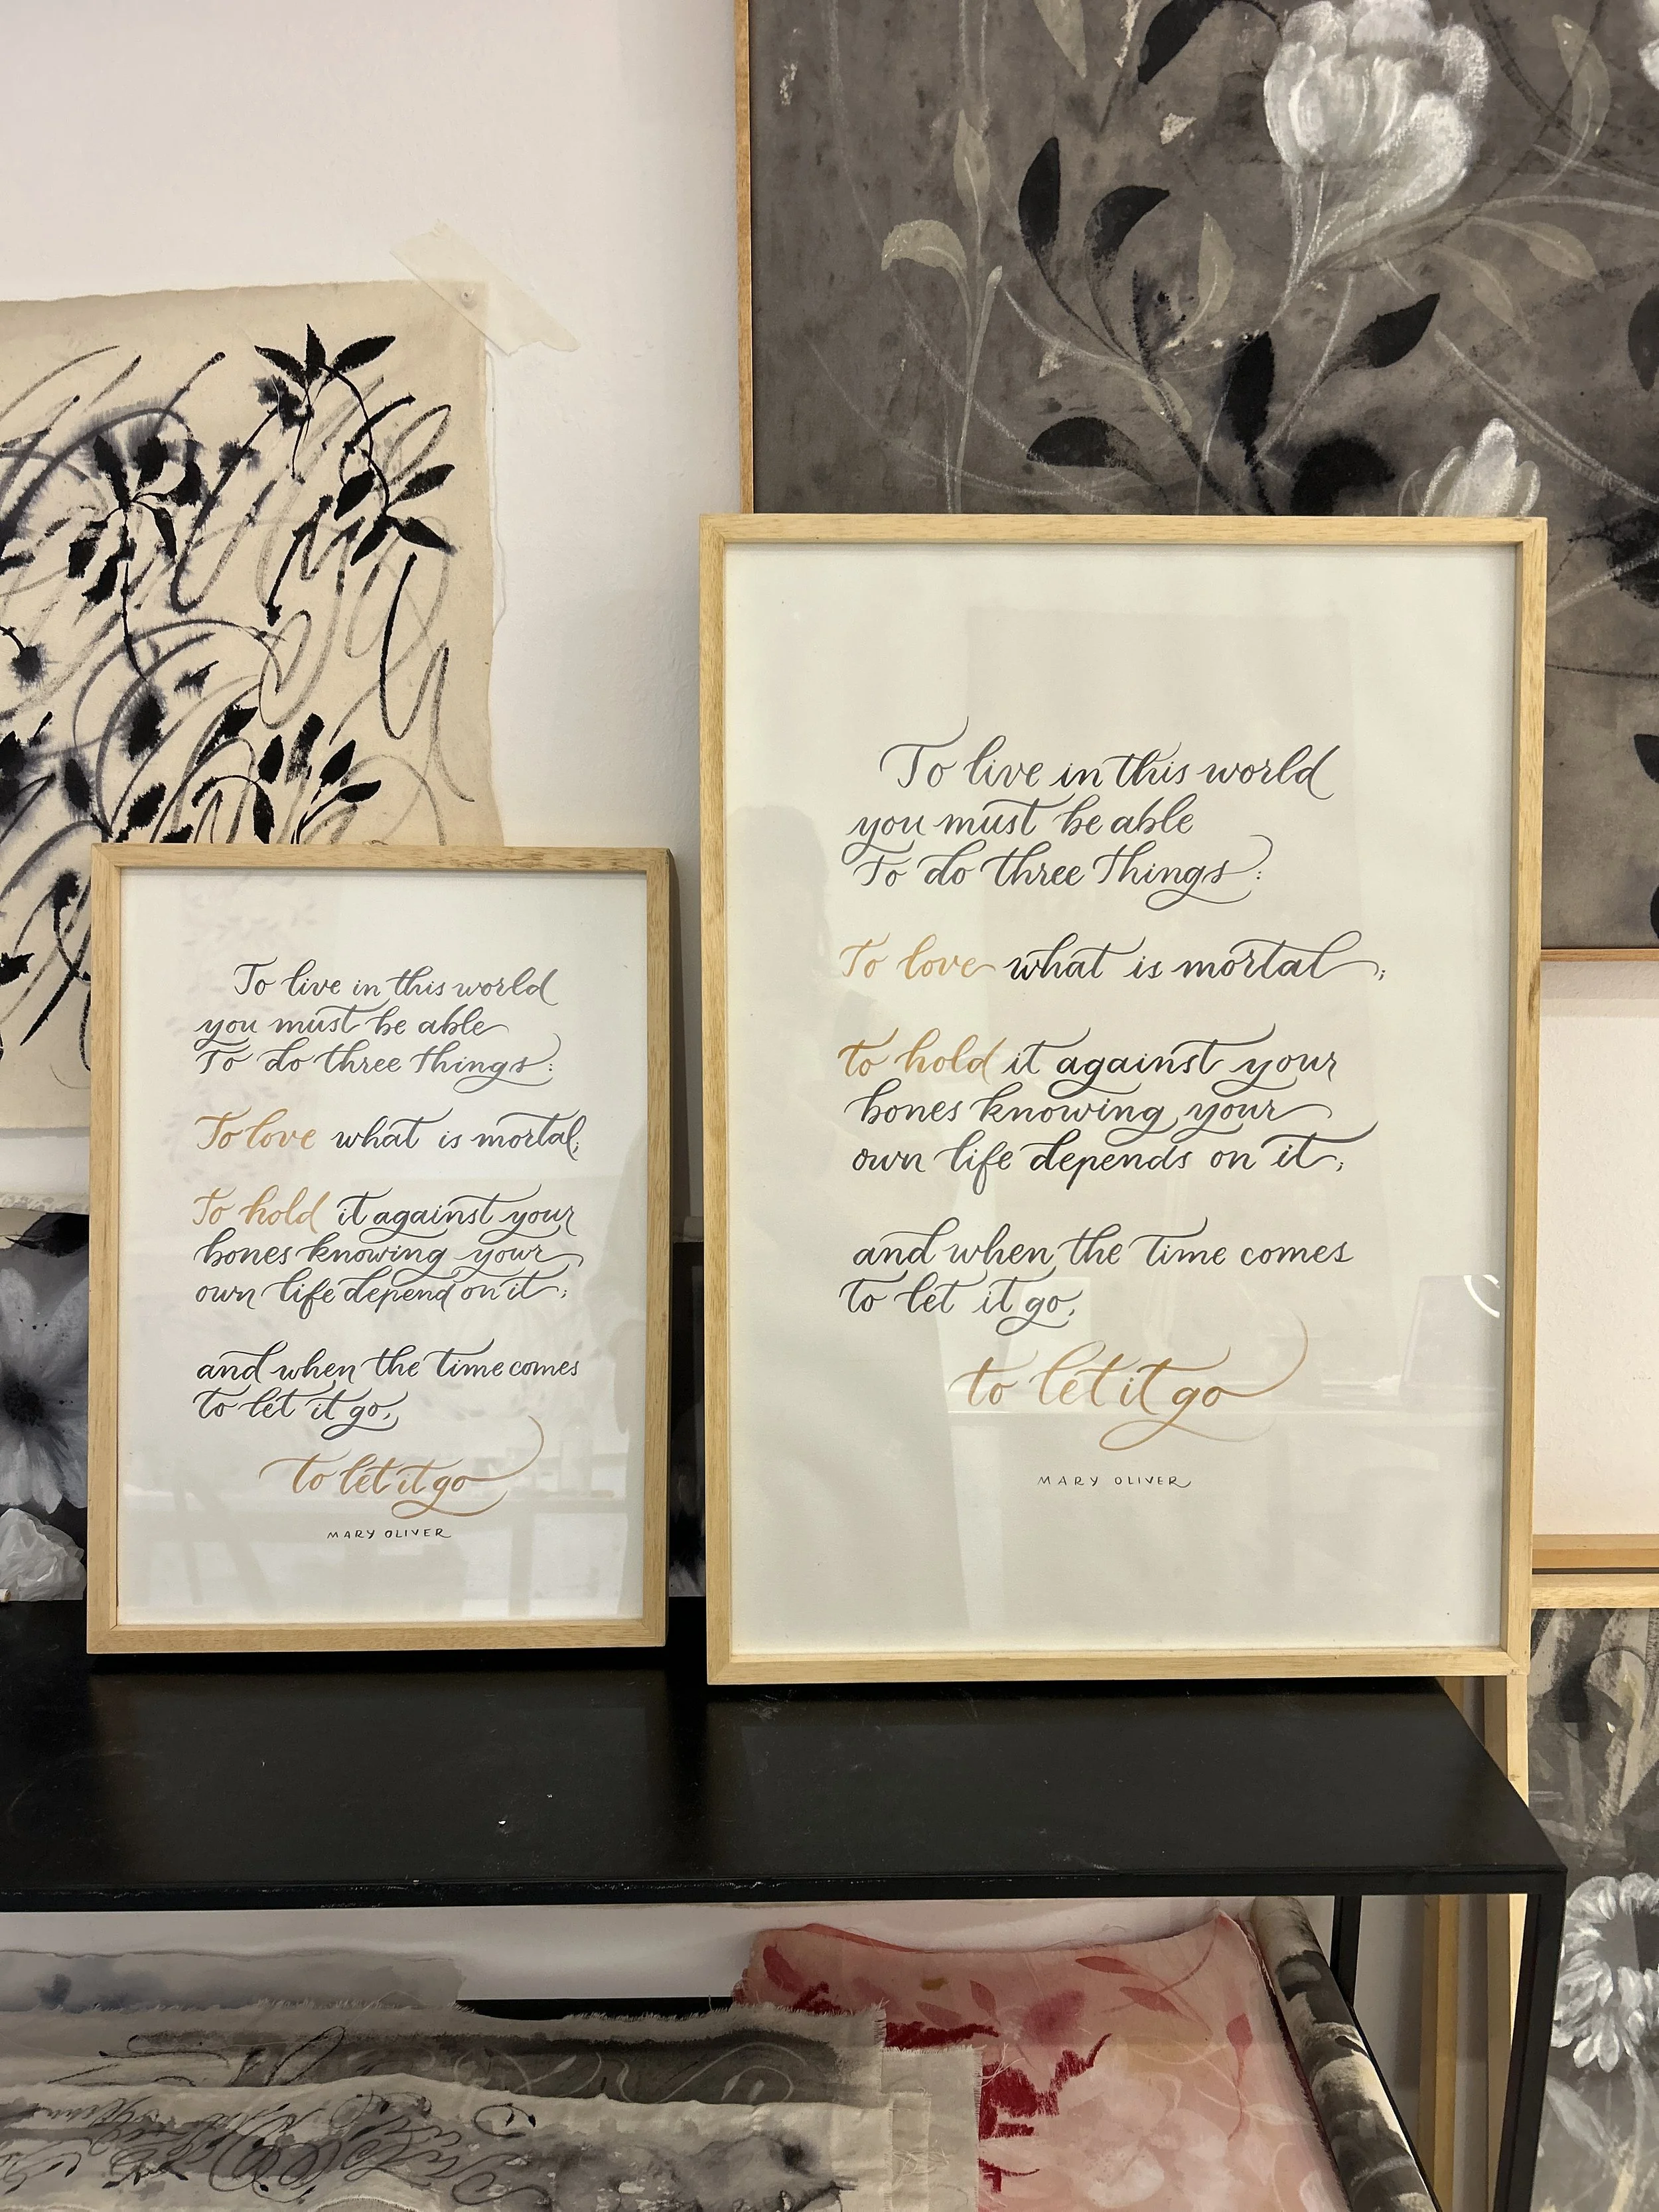 To live in this world
you must be able
To do three things:
To love what is mortal;
To hold it against your
bones knowing your
own life depend on it;
and when the time comes
to let it go,
to let it go
MARY OLIVER
To live in this world
you must be able
To do three things:
To love what is mortal;
to hold it against your
bones knowing your
own life depends on it;
and when the time comes
to let it go,
to let it go
MARY OLIVER